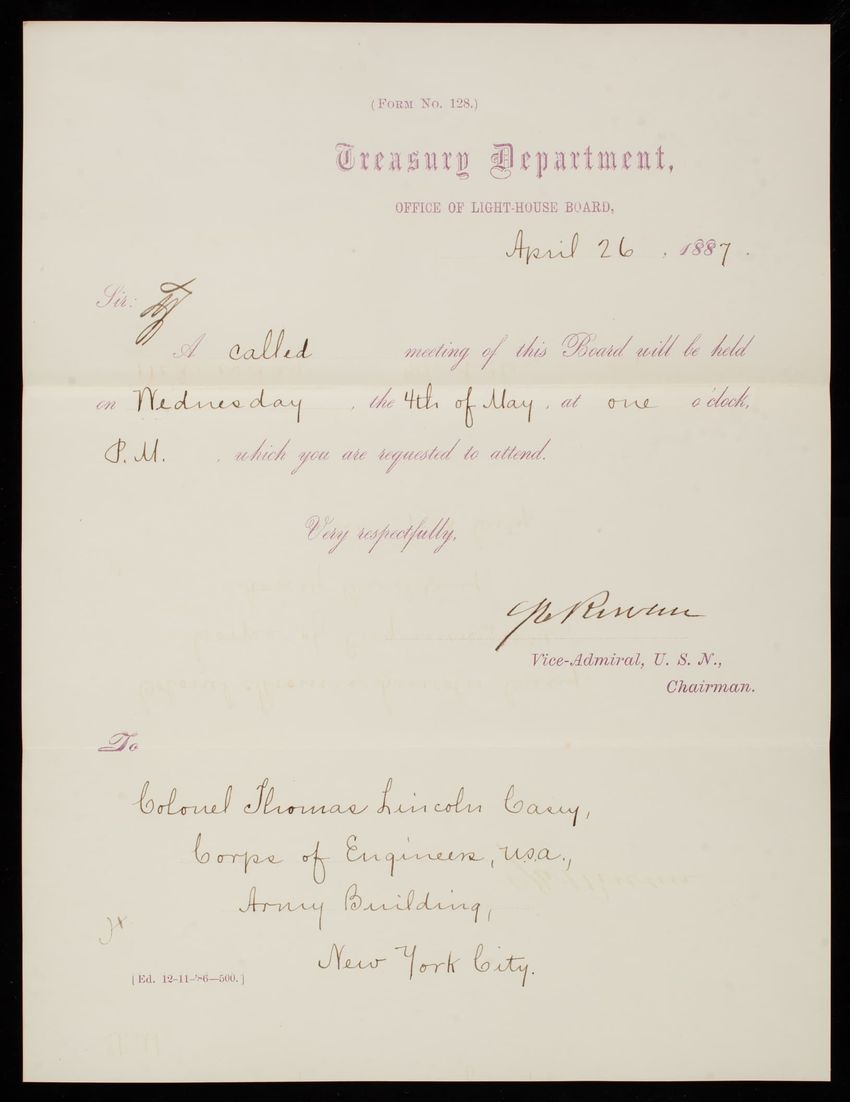 (FORM NO. 128.)
Treasury Department,
OFFICE OF LIGHT-HOUSE BOARD,
April 26, 1887.
Sir:
A called meeting of this Board will be held
on Wednesday, the 4th of May, at one o'clock,
P.M., which you are requested to attend.
Very respectfully,
Rowan
Vice-Admiral, U. S. N.,
Chairman.
To
Colonel Thomas Lincoln Casey,
Corps of Engineers, U.S.A.,
Army Building,
New York City.
[Ed. 12-11-'86—500.]